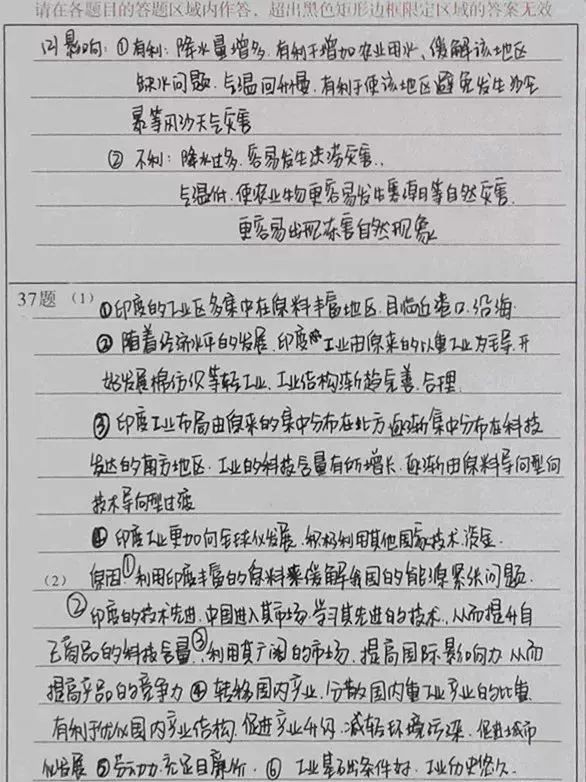 请在各题目的答题区域内作答，超出黑色矩形边框限定区域的答案无效
(2) 影响：①有利：降水量增多，有利于增加农业用水、缓解该地区
缺水问题．气温回升慢，有利于使该地区避免发生沙尘
暴等风沙天气灾害
② 不利：降水过多，容易发生洪涝灾害，
气温低，使农业物更容易发生寒潮等自然灾害，
更容易出现冻害自然现象
37题 (1) ①印度的工业区多集中在原料丰富地区，且临近港口，沿海
② 随着经济水平的发展，印度 工业由原来的以重工业为主导，开
始发展棉纺织等轻工业，工业结构渐趋完善、合理
③ 印度工业布局由原来的集中分布在北方逐渐集中分布在科技
发达的南方地区，工业的科技含量有所增长，逐渐由原料导向型向
技术导向型过渡
④ 印度工业更加向全球化发展，积极利用其他国家技术、资金．
(2) 原因①利用印度丰富的原料来缓解我国的能源紧张问题．
② 印度的技术先进，中国进入其市场，学习其先进的技术，从而提升自
己商品的科技含量③，利用其广阔的市场，提高国际影响力，从而
提高产品的竞争力 ④ 转移国内产业，分散国内重工业产业的比重，
有利于优化国内产业结构，促进产业升级，减轻环境污染，促进城市
化发展 ⑤ 劳动力充足且廉价，⑥ 工业基础条件好，工业历史悠久．